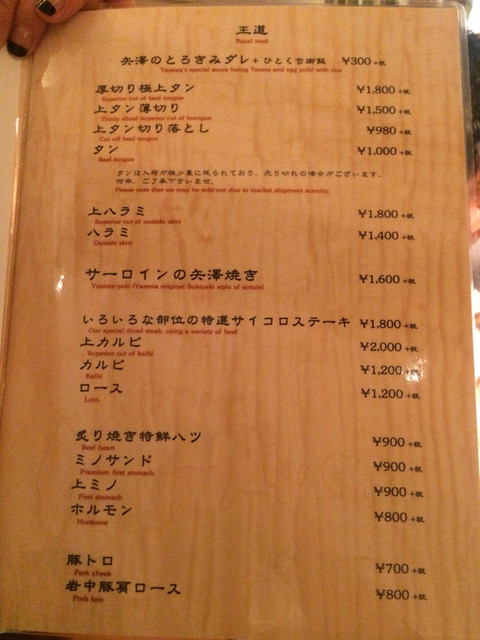 王道
Royal road
矢澤のとろきみダレ+ひとくち御飯 ¥300+税
Yazawa's special sauce fusing Tororo and egg yolk) with rice
厚切り極上タン ¥1,800+税
Superior cut of beef tongue
上タン薄切り ¥1,500+税
Thinly sliced superior cut of beef tongue
上タン切り落とし ¥980+税
Cut off beef tongue
タン ¥1,000+税
Beef tongue
タンは入荷が極少量に限られており、売り切れの場合がございます。
何卒、ご了承下さいませ。
Please note that we may be sold out due to market shipment scarcity.
上ハラミ ¥1,800+税
Superior cut of outside skirt
ハラミ ¥1,400+税
Outside skirt
サーロインの矢澤焼き ¥1,600+税
Yazawa-yaki (Yazawa original Sukiyaki style of sirloin)
いろいろな部位の特選サイコロステーキ ¥1,800+税
Our special diced steak, using a variety of beef
上カルビ ¥2,000+税
Superior cut of kalbi
カルビ ¥1,200+税
Kalbi
ロース ¥1,200+税
Loin
炙り焼き特鮮ハツ ¥900+税
Beef heart
ミノサンド ¥900+税
Premium first stomach
上ミノ ¥900+税
First stomach
ホルモン ¥800+税
Hormone
豚トロ ¥700+税
Pork cheek
岩中豚肩ロース ¥800+税
Pork loin